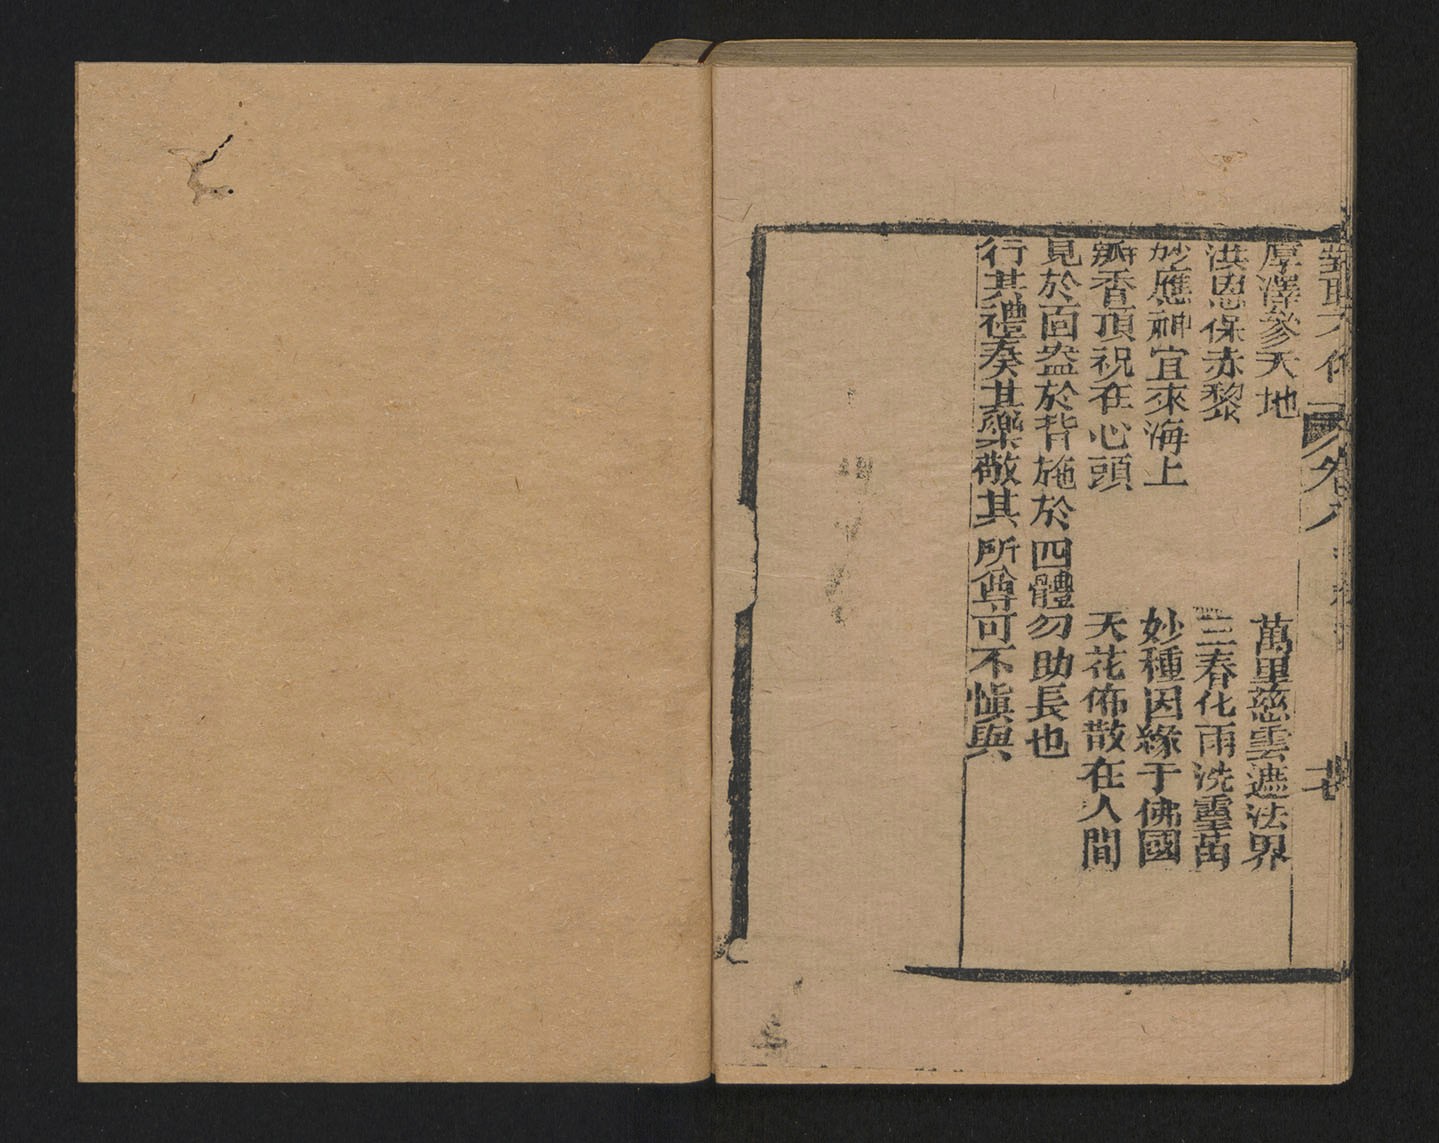 卷八
十七
厚澤參天地 萬里慈雲遮法界
洪恩保赤黎 三春化雨洗靈苗
妙應神宜來海上 妙種因緣于佛國
瓣香頂祝在心頭 天花佈散在人間
見於面盎於背施於四體勿助長也
行其禮奏其樂敬其所尊可不慎與